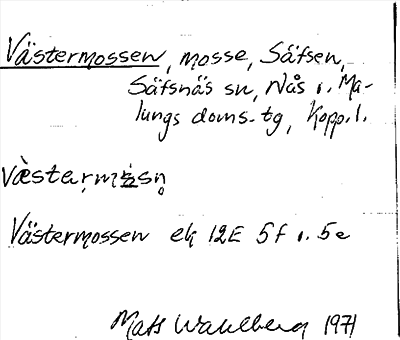 Västermossen, mosse, Säfsen,
Säfsnäs sn, Nås o. Ma-
lungs doms.tg, Kopp.l.
Västermossen ek 12E 5f o. 5e
Mats Wahlberg 1971